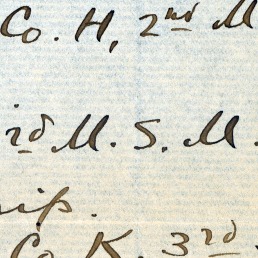 Co. H, 2nd M
rd M. S. M.
ip.
Co. K. 3rd